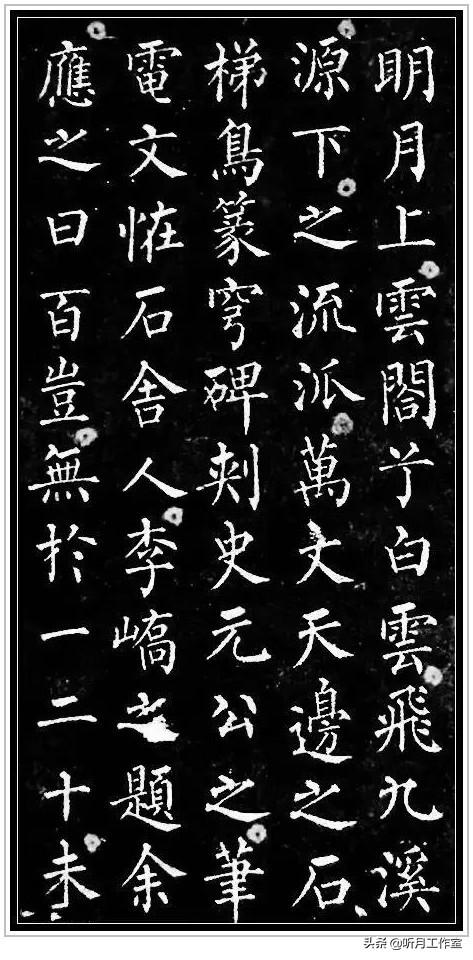 明月上雲閣兮白雲飛九溪
源下之流派萬丈天邊之石
梯鳥篆穹碑刺史元公之筆
電文恠石舍人李嶠之題余
應之曰百豈無於一二十未
头条@听月工作室